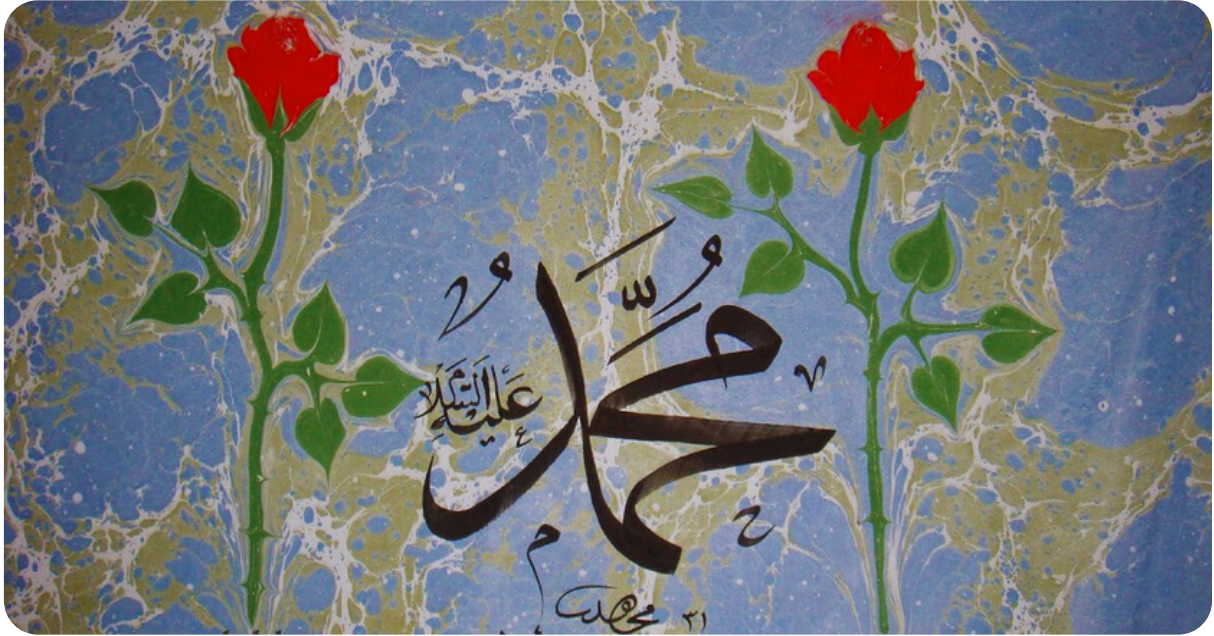 محمد
عليه السلام
٣١